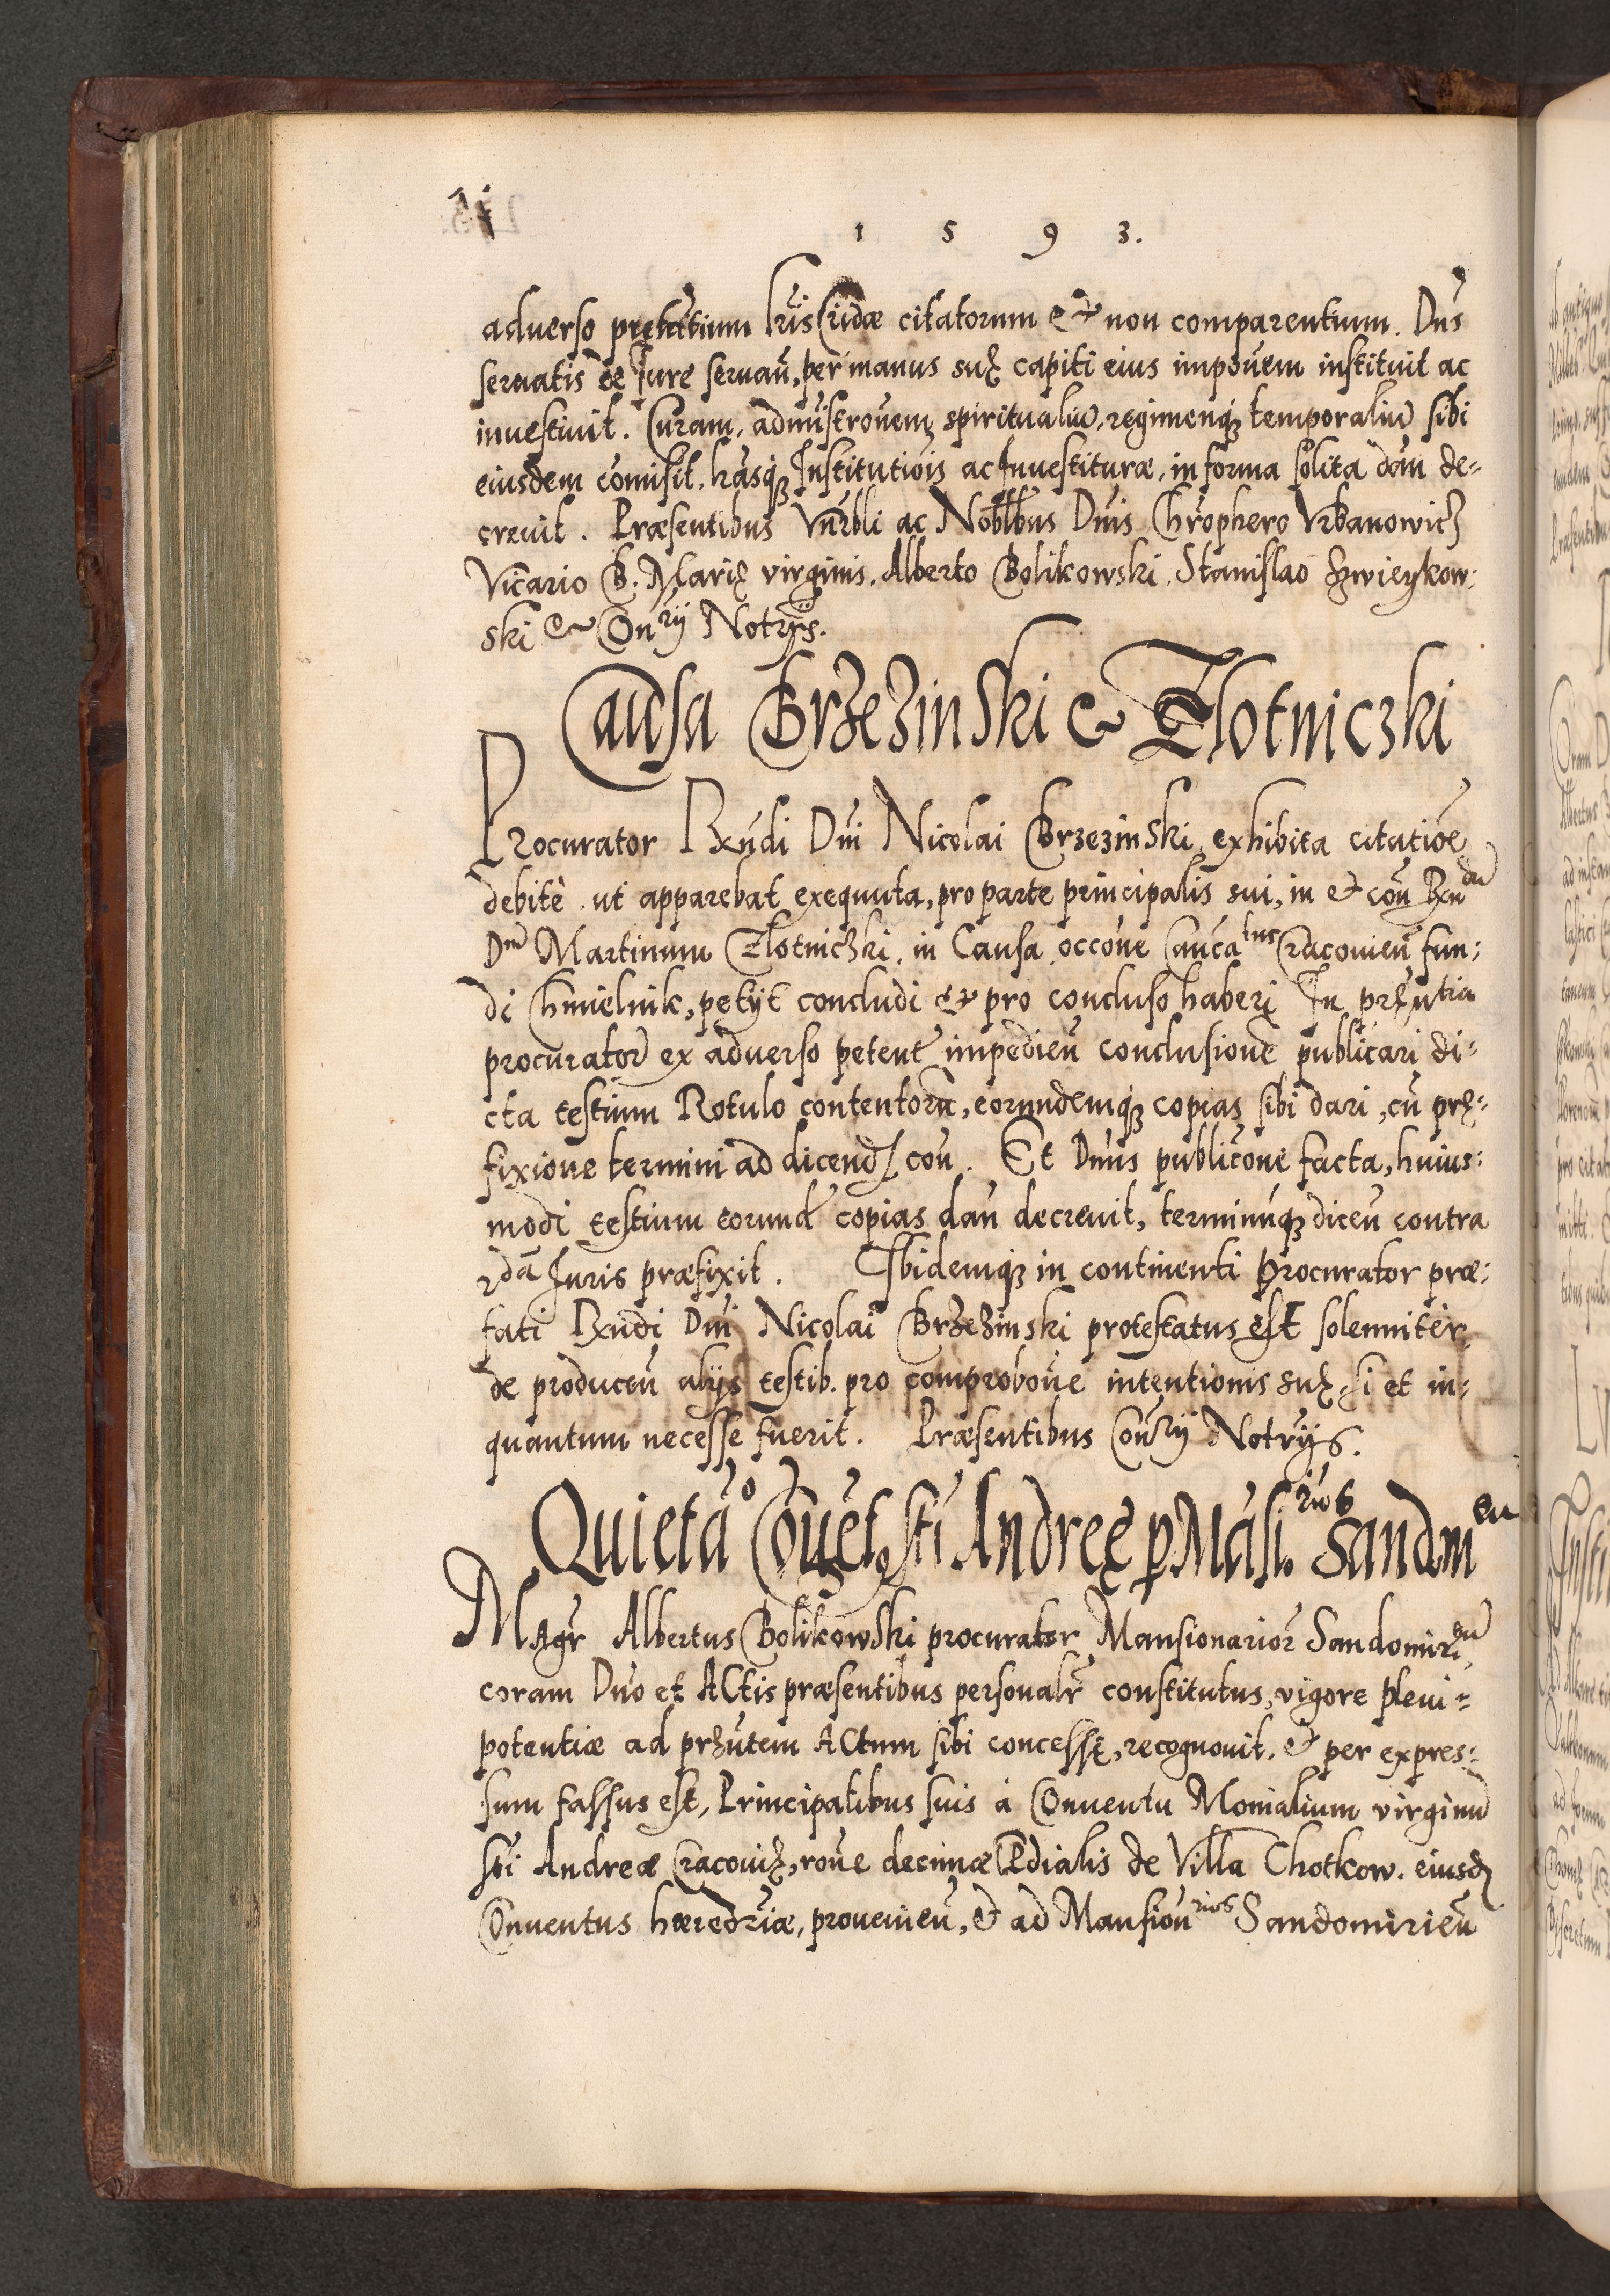 1 5 9 3.
aduerso prętẽtium lrıs Cridæ citatorum & non comparentium. Dn̄s
seruatis de Jure seruan̄, per manus suę capiti eius impon̄em instituit ac
inuestiuit. Curam, admīstron̄em spiritualiū, regimenq3 temporaliū sibi
eiusdem com̄isit. hr̄asq3 Institution̄is ac Inuestituræ, in forma solita dan̄ de-
creuit. Præsentibus Vn̄rbli ac Nobl̄bus Dn̄is Chrōphero Vrbanowicz
Vic̄ario B. Marię virginis. Alberto Bolikowski. Stanislao
ski & Con̄rij Notrijs.
Causa Brzezinski & Zlotniczki
Procurator Rxn̄di Dn̄i Nicolai Brzezinski, exhibita citatiōe
debitè, ut apparebat exequuta, pro parte principalis sui, in et con̄ Rxn̄dū
Dnū Martinum Zlotniczki. in Causa occōne Can̄catus Cracouien̄ fun-
di Chmielnik, petijt concludi & pro concluso haberi In pręn̄tia
procurator̄ ex aduerso petent̄ impedien̄ conclusionē publicari di-
cta testium Rotulo contentorū, eorundemq3 copias sibi dari, cū prę-
fixione termini ad dicend con̄. Et Dn̄us publicōne facta, huius-
modi testium eorund copias dan̄ decreuit, terminūq3 dicen̄ contra
2dā Juris præfixit. Ibidemq3 in continenti Procurator præ-
fati Rxn̄di Dn̄i Nicolai Brzezinski protestatus est solenniter
de producen̄ alijs testib. pro comprobōne intentionis suę, si et in-
quantum necesse fuerit. Præsentibus Con̄rij Notrijs.
Quietāo Cōuēt9 sti Andreę p Māsi.rios Sandmen
Magr̄ Albertus Bolikowski procurator Mansionarior̄ Sandomiren̄
coram Dn̄o et Actis præsentibus personalr̄ constitutus, vigore pleni-
potentiæ ad pręn̄tem Actum sibi concessę, recognouit. & per expres-
sum fassus est, Principalibus suis à Conuentu Monialium virginū
sti Andreæ Cracouię, rōne decimæ Pdialis de Villa Chotkow. eiusd
Conuentus hæredrıæ, prouenien̄, & ad Mansion̄rios Sandomirien̄